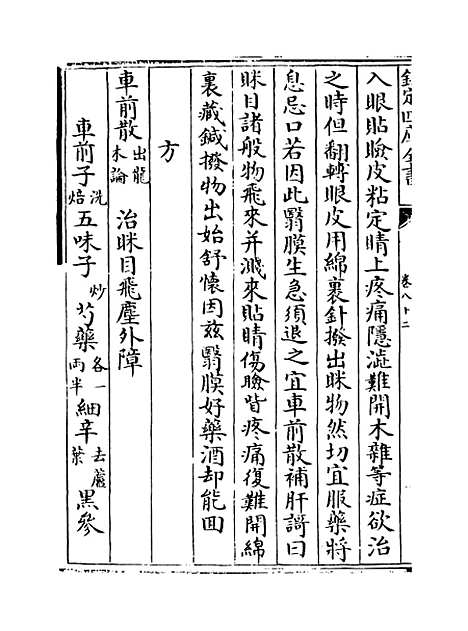 欽定四庫全書
卷八十二
入眼貼瞼皮粘定睛上疼痛隱澁難開木雜等症欲治
之時但翻轉眼皮用綿裹針撥出眯物然切宜服藥將
息忌口若因此翳膜生急須退之宜車前散補肝謌曰
眯目諸般物飛來并濺來貼睛傷瞼眥疼痛復難開綿
裹藏鍼撥物出始舒懐因兹翳膜好藥酒却能囬
方
車前散出龍木論 治眯目飛塵外障
車前子洗焙五味子炒芍藥各一兩半細辛去蘆葉黒參